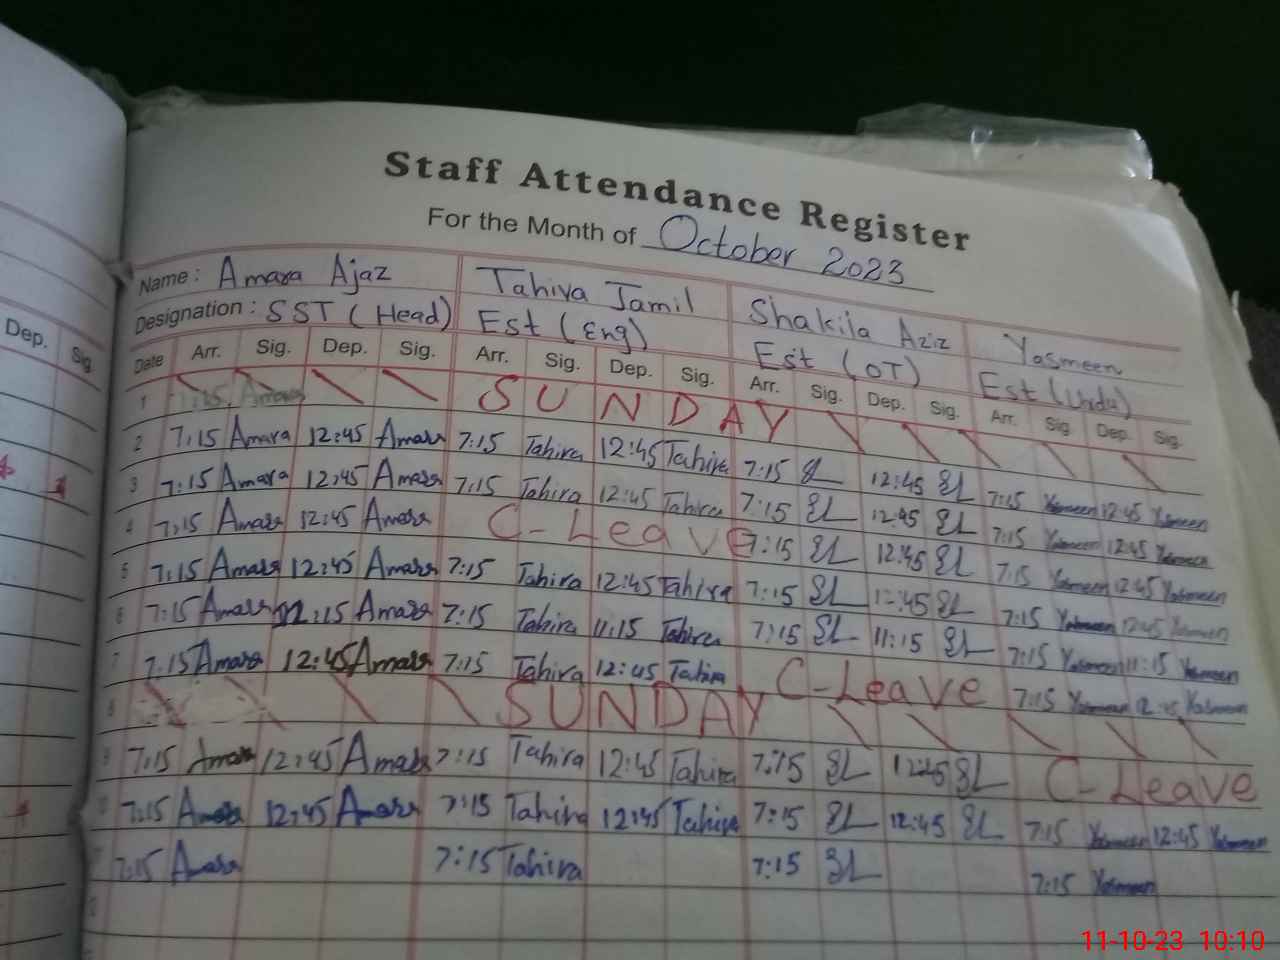 Staff Attendance Register
For the Month of October 2023
Name : Amara Ajaz Tahira Jamil Shakila Aziz Yasmeen
Designation : SST (Head) Est (Eng) Est (OT) Est (Urdu)
Dep. Sig.
Date Arr. Sig. Dep. Sig. Arr. Sig. Dep. Sig. Arr. Sig. Dep. Sig. Arr. Sig. Dep. Sig.
1 7:15 Amara SUNDAY
2 7:15 Amara 12:45 Amara 7:15 Tahira 12:45 Tahira 7:15 12:45 7:15 Yasmeen 12:45 Yasmeen
3 7:15 Amara 12:45 Amara 7:15 Tahira 12:45 Tahira 7:15 12:45 7:15 Yasmeen 12:45 Yasmeen
4 7:15 Amara 12:45 Amara C-Leave 7:15 12:45 7:15 Yasmeen 12:45 Yasmeen
5 7:15 Amara 12:45 Amara 7:15 Tahira 12:45 Tahira 7:15 12:45 7:15 Yasmeen 12:45 Yasmeen
6 7:15 Amara Amara 7:15 Tahira 11:15 Tahira 7:15 11:15 7:15 Yasmeen 11:15 Yasmeen
7 7:15 Amara 12:45 Amara 7:15 Tahira 12:45 Tahira C-Leave 7:15 Yasmeen 12:45 Yasmeen
8 SUNDAY
9 7:15 Amara 12:45 Amara 7:15 Tahira 12:45 Tahira 7:15 12:45 C-Leave
7:15 Amara 12:45 Amara 7:15 Tahira 12:45 Tahira 7:15 12:45 7:15 Yasmeen 12:45 Yasmeen
7:15 Amara 7:15 Tahira 7:15 7:15 Yasmeen
11-10-23 10:10